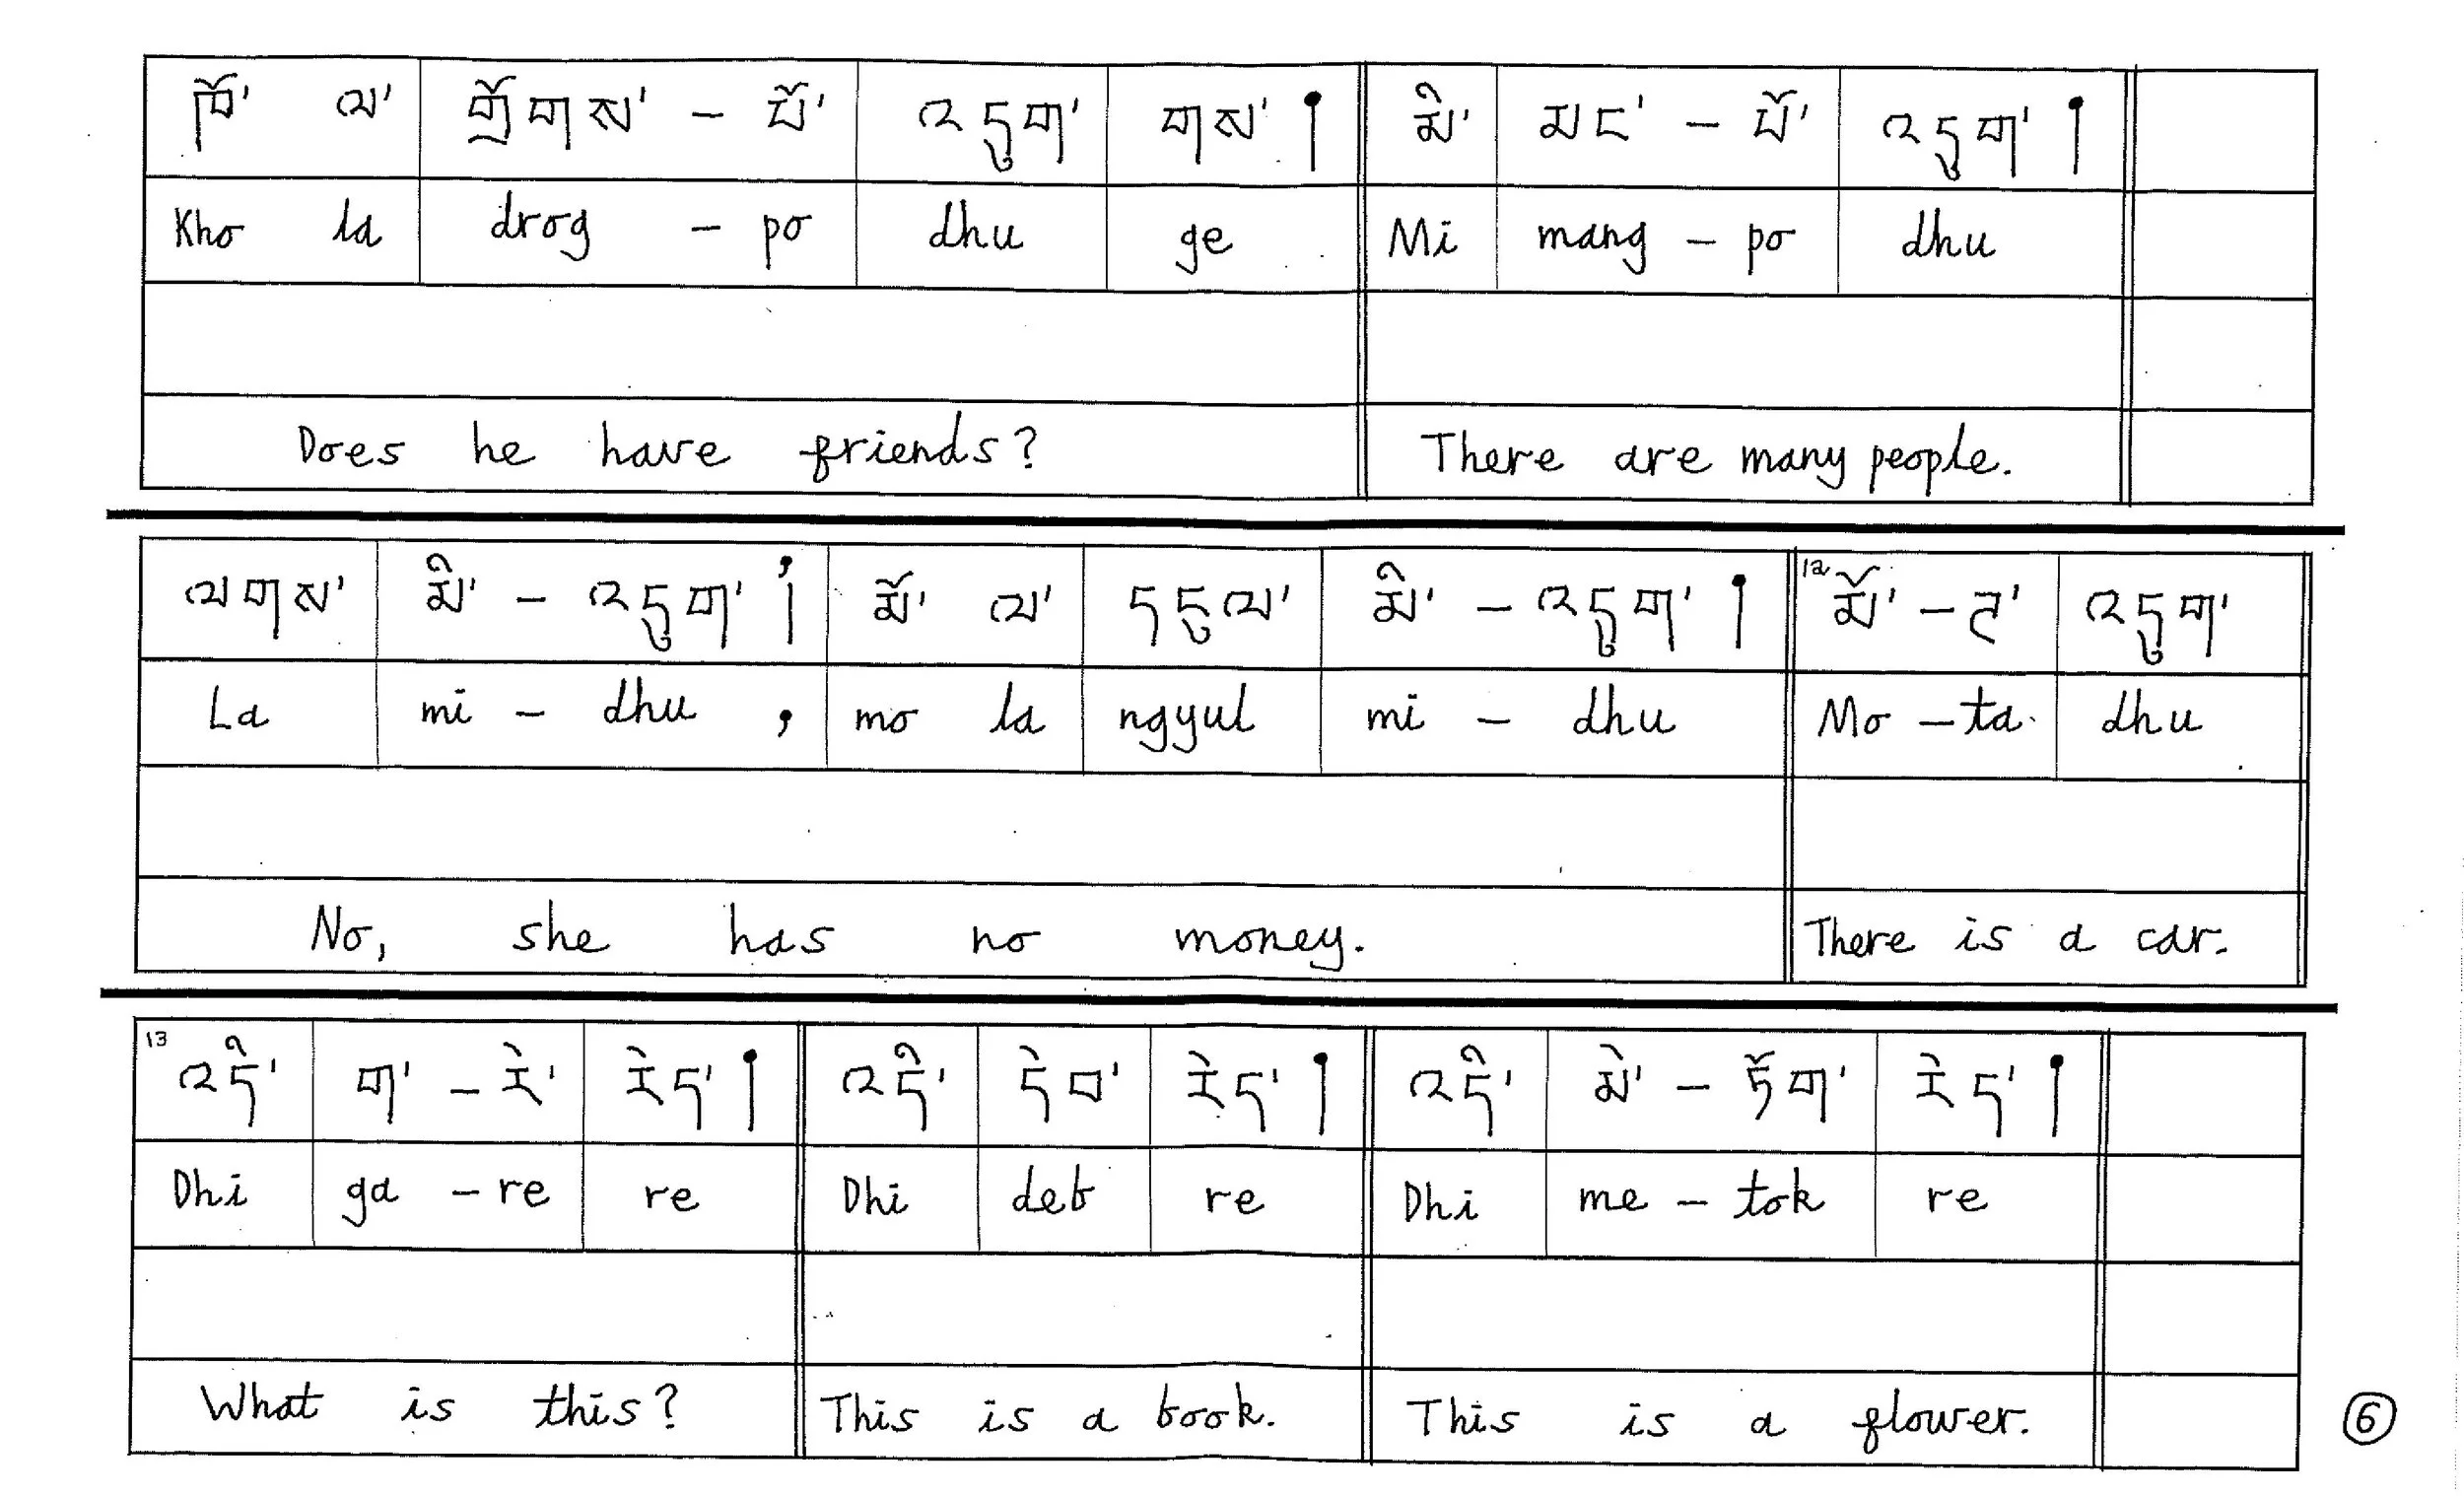 ཁོ་ ལ་ གྲོགས་ - པོ་ འདུག་ གས་ ། མི་ མང་ - པོ་ འདུག་ །
Kho la drog - po dhu ge Mi mang - po dhu
Does he have friends? There are many people.
ལགས་ མི་ - འདུག་ ། མོ་ ལ་ དངུལ་ མི་ - འདུག་ ། 12 མོ་ - ཊ་ འདུག་
La mi - dhu , mo la ngyul mi - dhu Mo - ta dhu
No, she has no money. There is a car.
13 འདི་ ག་ - རེ་ རེད་ ། འདི་ དེབ་ རེད་ ། འདི་ མེ་ - ཏོག་ རེད་ །
Dhi ga - re re Dhi deb re Dhi me - tok re
What is this? This is a book. This is a flower.
6